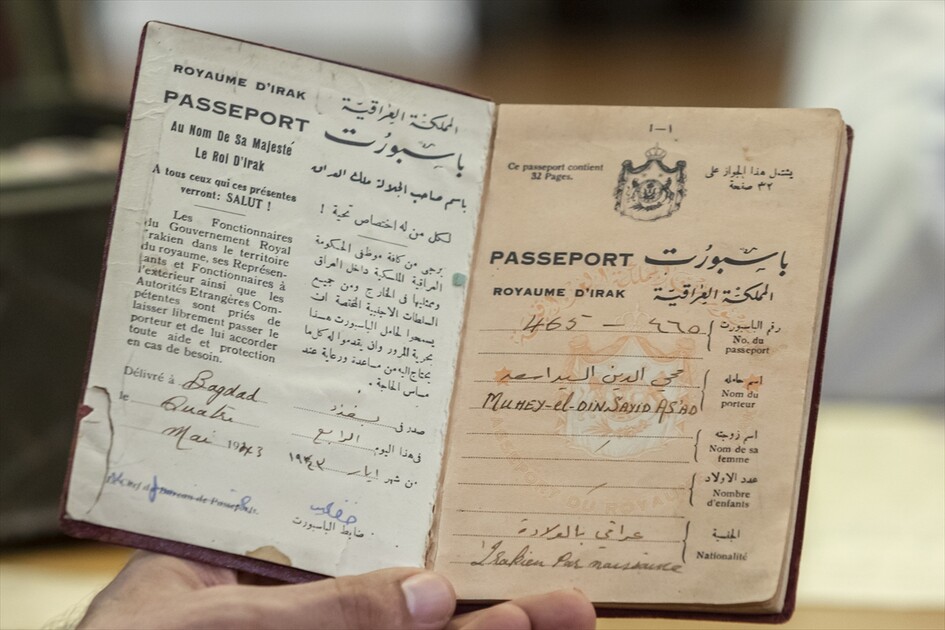 ROYAUME D'IRAK
PASSEPORT
Au Nom De Sa Majesté
Le Roi D'Irak
A tous ceux qui ces présentes
verront: SALUT !
Les Fonctionnaires
du Gouvernement Royal
Irakien dans le territoire
du royaume, ses Représen-
tants et Fonctionnaires à
l'exterieur ainsi que les
Autorités Etrangères Com-
pétentes sont priés de
laisser librement passer le
porteur et de lui accorder
toute aide et protection
en cas de besoin.
Délivré à Bagdad
le Quatre
Mai 1943
المملكة العراقية
باسبورت
باسم صاحب الجلالة ملك العراق
لكل من له اختصاص تحية !
يرجى من كافة موظفي الحكومة
العراقية الملكية داخل العراق
وممثليها في الخارج ومن جميع
السلطات الاجنبية المختصة ان
يسمحوا لحامل الباسبورت هذا
بحرية المرور وان يقدموا له كل ما
يحتاج اليه من مساعدة ورعاية عند
مساس الحاجة .
صدر في بغداد
في هذا اليوم الرابع
من شهر ايار ١٩٤٣
ضابط الباسبورت
١-1
Ce passeport contient
32 Pages.
يشتمل هذا الجواز على
٣٢ صفحة
PASSEPORT باسبورت
ROYAUME D'IRAK المملكة العراقية
465 — ٤٦٥ رقم الباسبورت
No. du
passeport
محي الدين السيد اسعد اسم حامله
MUHEY-el-DIN SAYID AS'AD Nom du
porteur
اسم زوجته
Nom de sa
femme
عدد الاولاد
Nombre
d'enfants
عراقي بالولادة الجنسية
Irakien Par naissance Nationalité